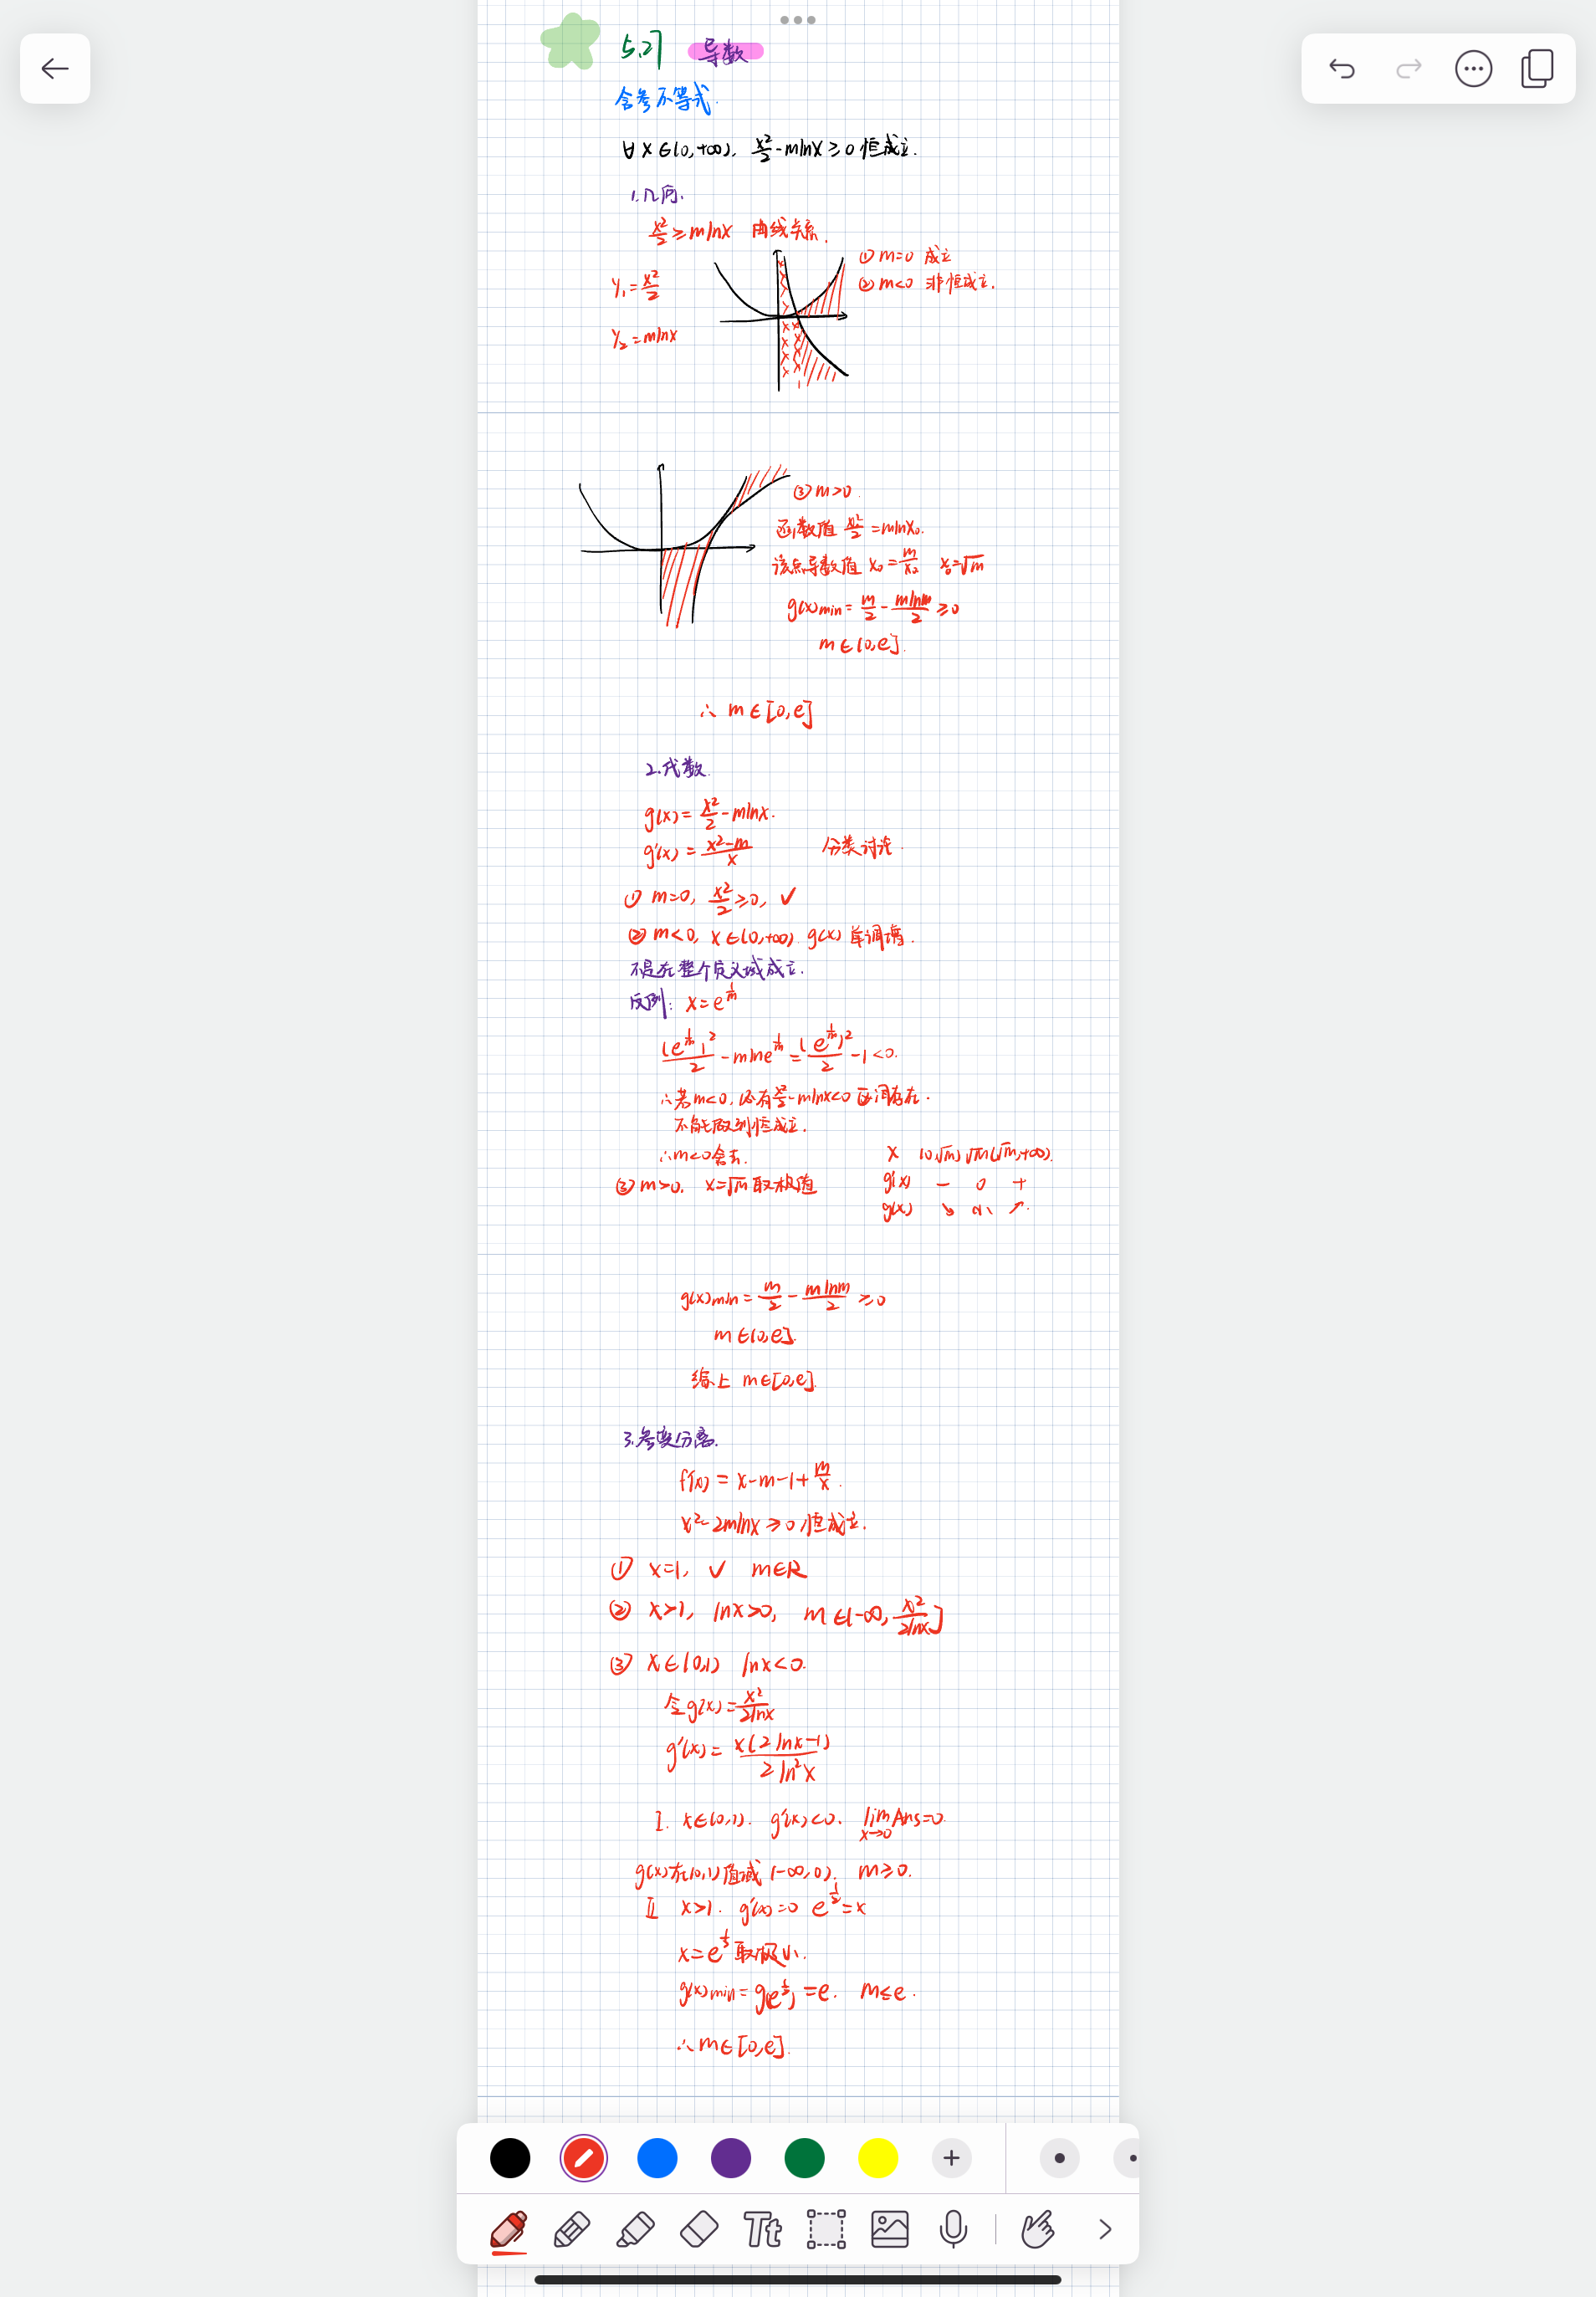 5.27 导数
含参不等式.
∀ x∈(0,+∞), x²/2 - mlnx ≥ 0 恒成立.
1.几何.
x²/2 ≥ mlnx 曲线关系.
① m=0 成立
② m<0 非恒成立.
y₁ = x²/2
y₂ = mlnx
③ m>0.
函数值 x₀²/2 = mlnx₀.
该点导数值 x₀ = m/x₀ x₀=√m
g(x)min = m/2 - mlnm/2 ≥ 0
m∈(0,e].
∴ m∈[0,e]
2.代数.
g(x) = x²/2 - mlnx.
g'(x) = (x²-m)/x 分类讨论.
① m=0, x²/2 ≥ 0, ✓
② m<0, x∈(0,+∞) g(x) 单调增.
不是在整个定义域成立.
反例: x = e^(1/m)
(e^(1/m))²/2 - mlne^(1/m) = (e^(1/m))²/2 - 1 < 0.
∴若m<0, 必有 x²/2 - mlnx<0 区间存在.
不能取到恒成立.
∴m<0舍去.
③ m>0. x=√m 取极值
x (0,√m) √m (√m,+∞).
g'(x) − 0 +
g(x) ↘ 小 ↗.
g(x)min = m/2 - mlnm/2 ≥ 0
m∈(0,e].
综上 m∈[0,e].
3.参变分离.
f'(x) = x-m-1+m/x.
x²-2mlnx ≥ 0 恒成立.
① x=1, ✓ m∈R
② x>1, lnx>0, m∈(-∞, x²/2lnx]
③ x∈(0,1) lnx<0.
令g(x) = x²/2lnx
g'(x) = x(2lnx-1)/2ln²x
I. x∈(0,1). g'(x)<0. lim x→0 Ans=0.
g(x)在(0,1)值域 (-∞,0). m≥0.
II x>1. g'(x)=0 e^(1/2)=x
x = e^(1/2) 取极小.
g(x)min = g(e^(1/2)) = e. m≤e.
∴m∈[0,e].
Tt